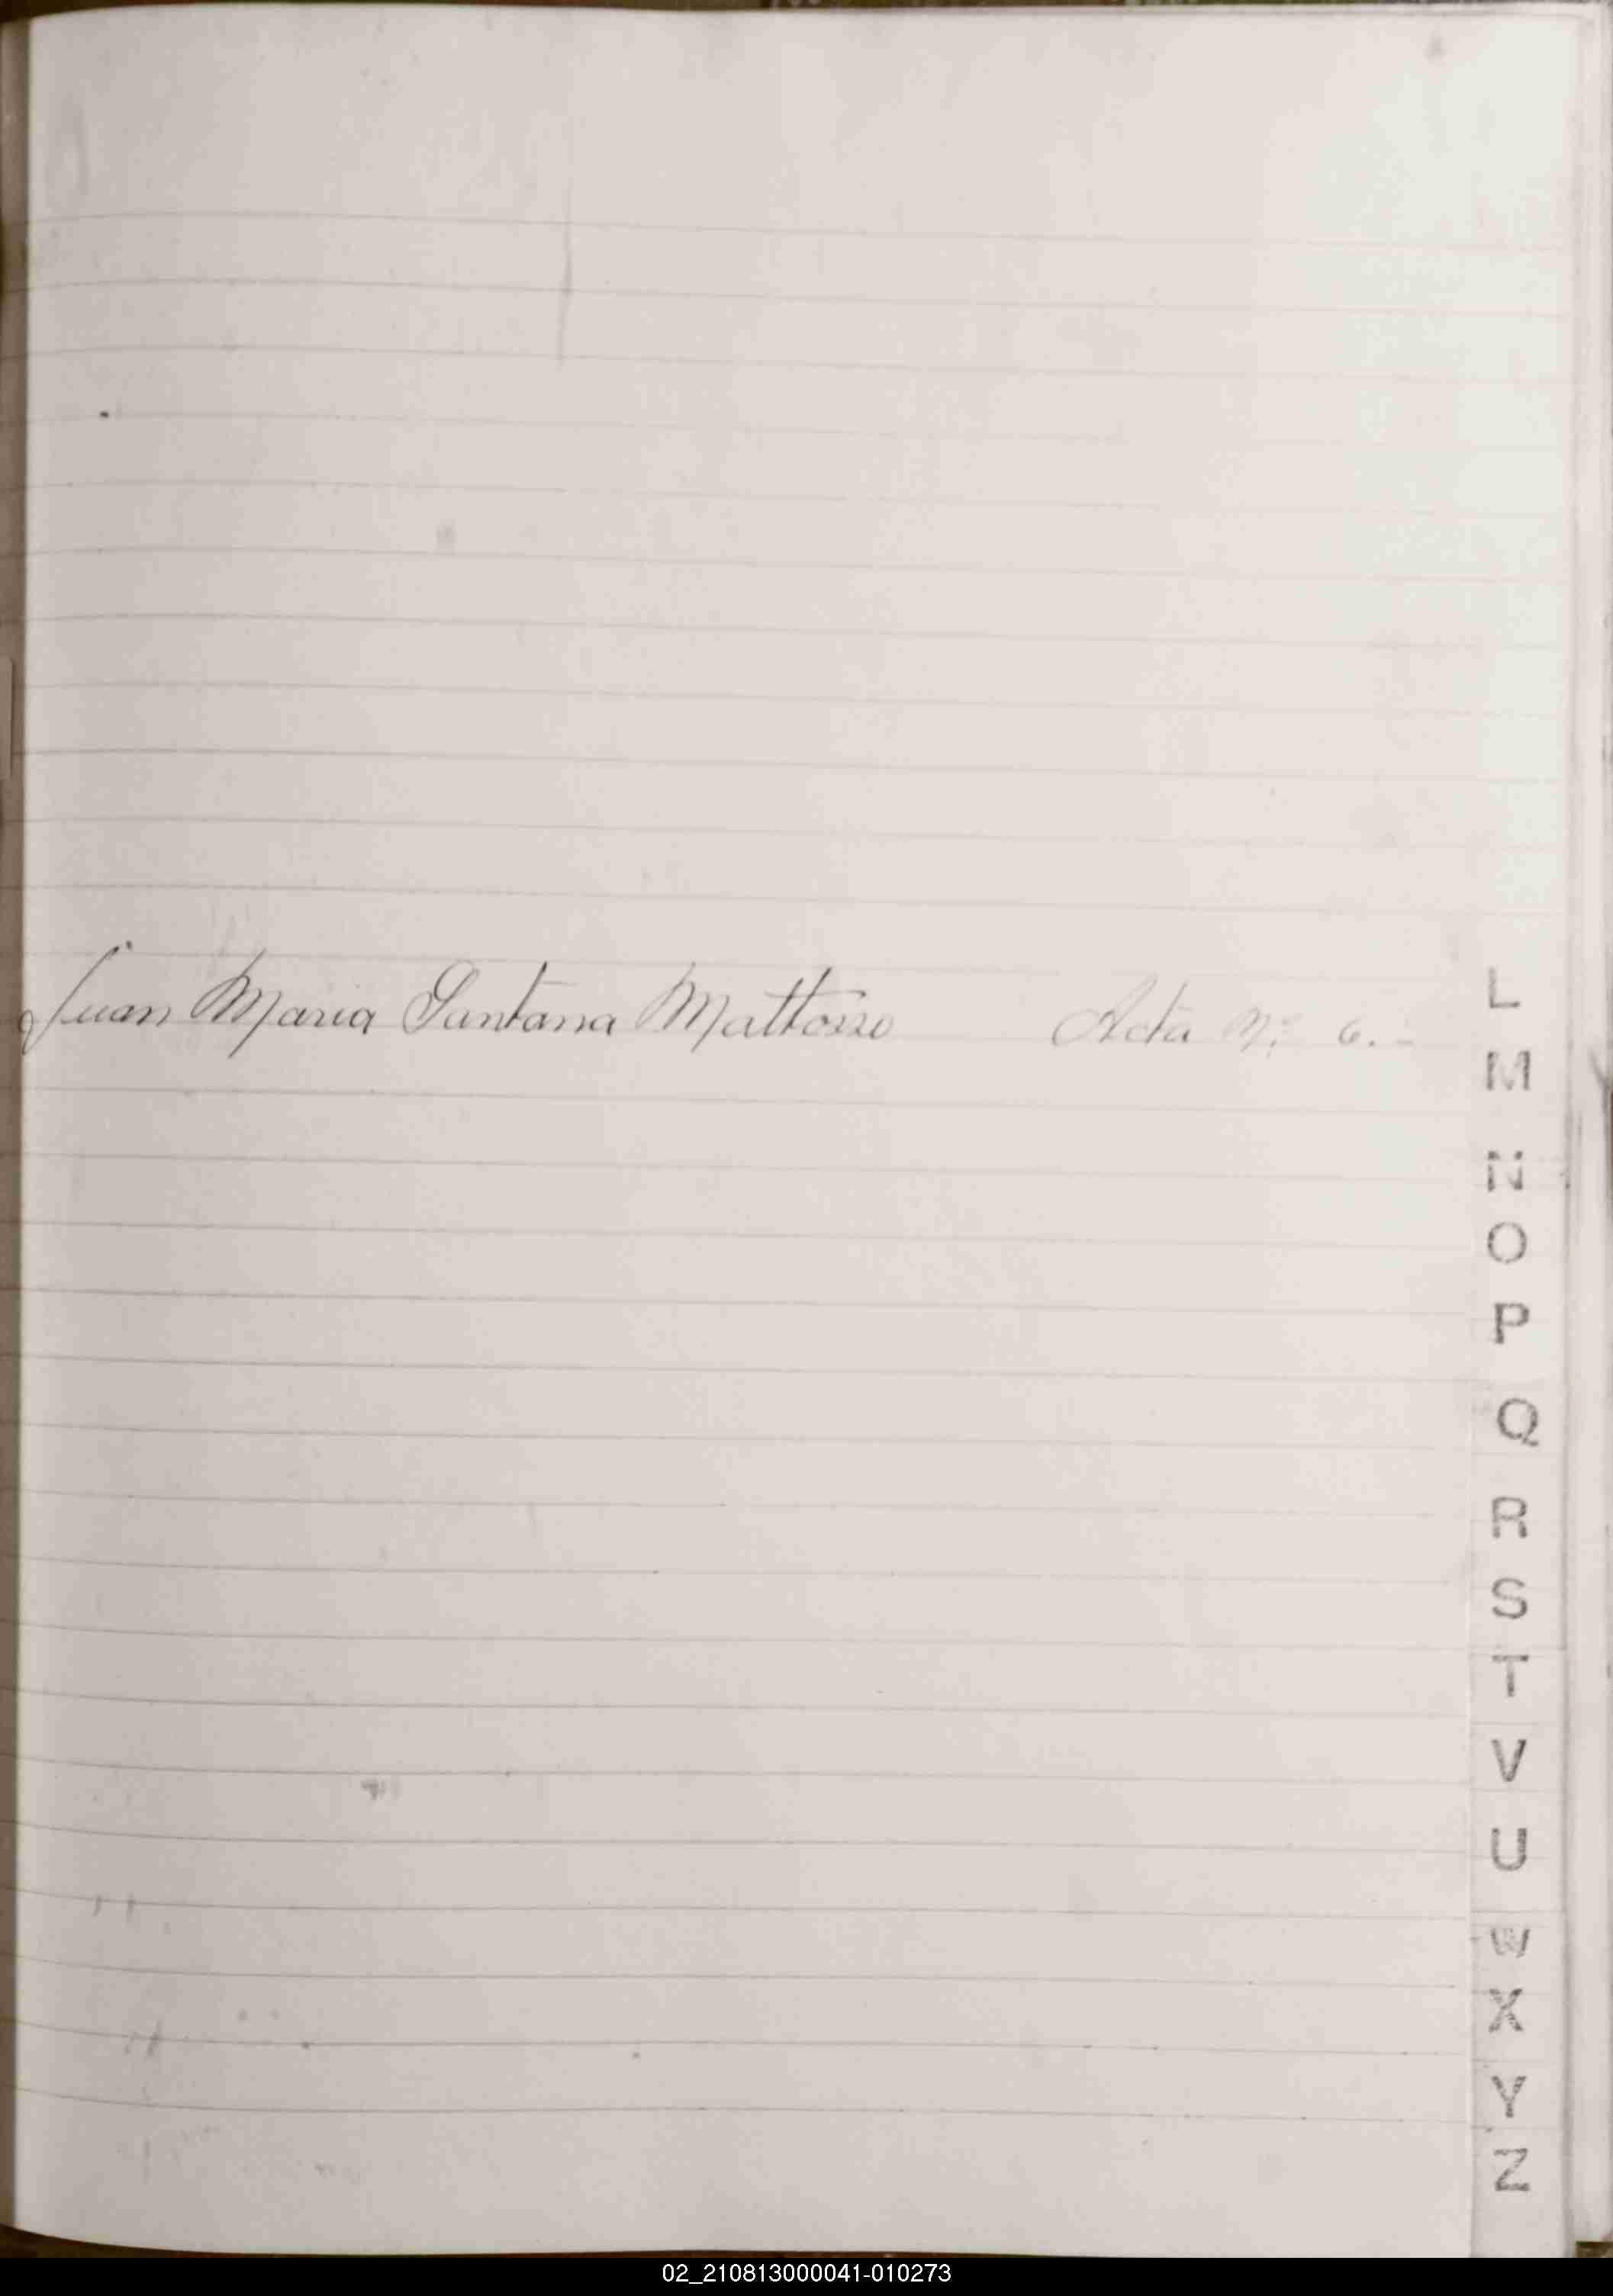 Juan Maria Santana Mattosso Acta Nº 6.-
L
M
N
O
P
Q
R
S
T
V
U
W
X
Y
Z
02_210813000041-010273